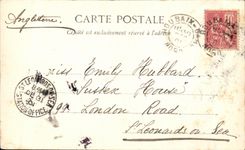 Angleterre
CARTE POSTALE
Ce côté est exclusivement réservé à l'adresse
ROUBAIX
Miss Emily Hubbard
Sussex House
London Road
St Leonards on Sea